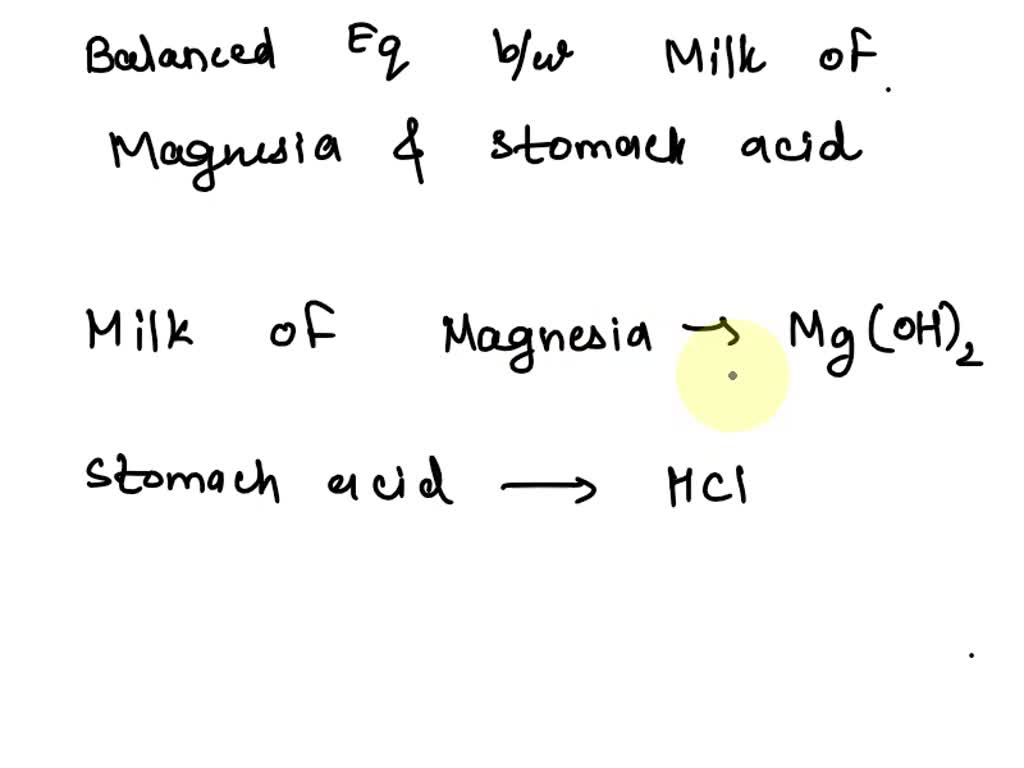 Balanced Eq b/w Milk of
Magnesia & stomach acid
Milk of Magnesia → Mg(OH)₂
Stomach acid → HCl